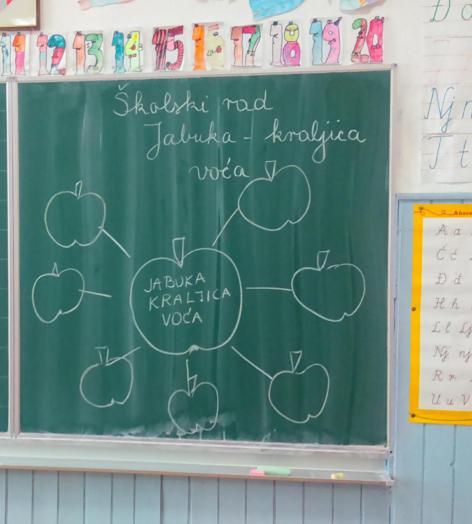 11 12 13 14 15 16 17 18 19 20
Školski rad
Jabuka - kraljica
voća
JABUKA
KRALJICA
VOĆA
A a
Č č
Đ đ
H h
L l Lj
Nj nj
R r
U u V